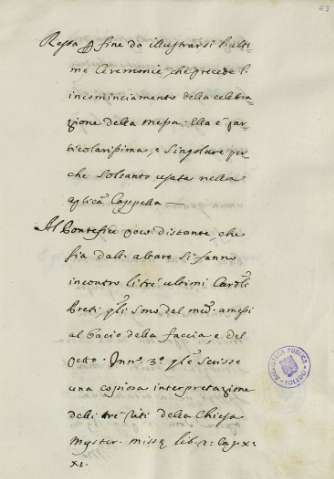 63
Resta p fine da illustrarsi l'ulti
me Ceremonie, che precede l'
incominciamento della celebra
zione della messa. Ella è par
ticolarissima, e singolare per
che soltanto usata nella
Cappella —
Il Pontefice poco distante che
sia dall'altare si fanno
incontro li trè ultimi Card.li
Preti, q.li sono del med. amessi
al bacio della faccia, e del
petto. Inn.o 3.o q.le scrisse
una copiosa interpretazione
delli trè della Chiesa
Myster. missæ lib. 2. Cap. X.
XI.
BIBLIOTECA PUBLICA
TOLEDO